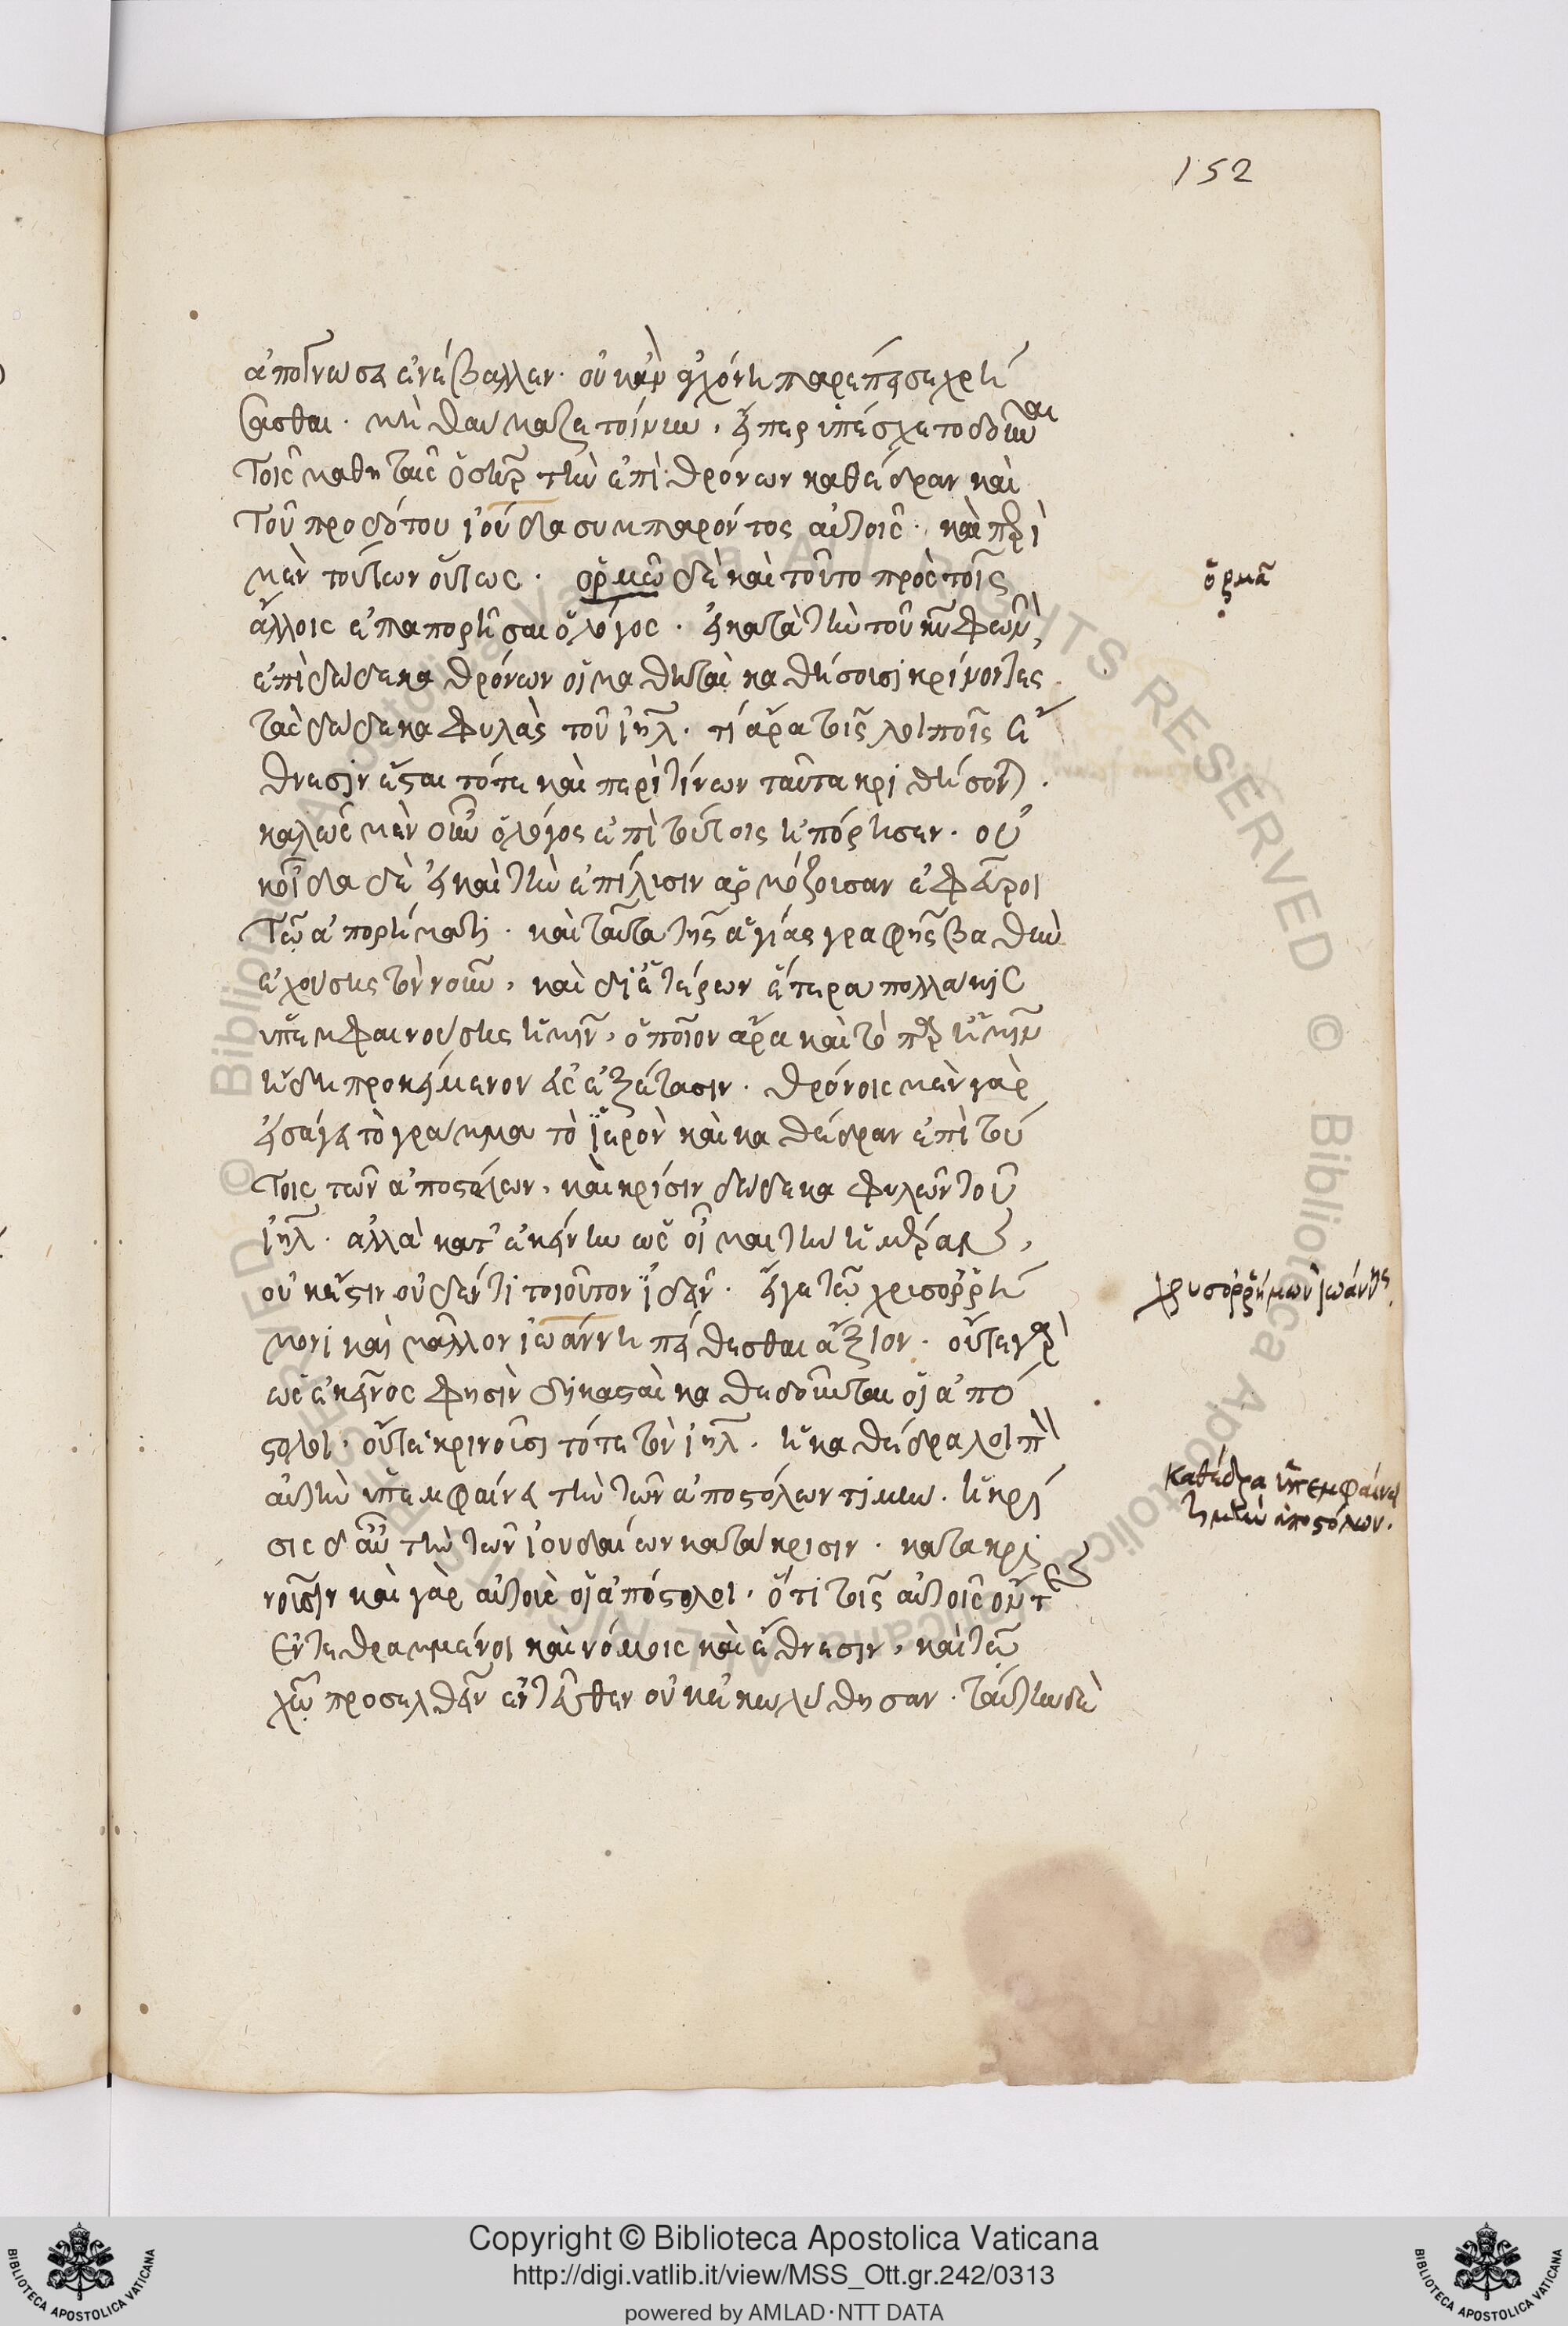 152
ἀπογνώσει ἐνέβαλλεν· οὐκ ἂν ἀγχόνῃ παρέπεισε χρή
σασθαι· μὴ θαύμαζε τοίνυν, εἴπερ ὑπέσχετο δοῦναι
τοῖς μαθηταῖς ὁ σωτὴρ τὴν ἐπὶ θρόνων καθέδραν καὶ
τοῦ προδότου ἰούδα συμπαρόντος αὐτοῖς· καὶ περὶ
μὲν τούτων οὕτως· ὁρμᾷ δὲ καὶ τοῦτο πρὸς τοῖς
ἄλλοις ἐπαπορῆσαι ὁ λόγος· εἰ κατὰ τὴν τοῦ κυ φωνὴν,
ἐπὶ δώδεκα θρόνων οἱ μαθηταὶ καθήσουσι κρίνοντες
τὰς δώδεκα φυλὰς τοῦ ιηλ· τί ἄρα τοῖς λοιποῖς ἔ
θνεσιν ἔσται τότε καὶ περὶ τίνων ταῦτα κριθήσονται·
καλῶς μὲν οὖν ὁ λόγος ἐπὶ τούτοις ἠπόρησεν· οὐ
κοῦν δια δὲ εἰ καὶ τὴν ἐπίλυσιν ἁρμόζουσαν ἐφεύροι
τῷ ἀπορήματι· καὶ ταῦτα τῆς ἁγίας γραφῆς βαθὺν
ἐχούσης τὸν νοῦν, καὶ δι' ἑτέρων ἕτερα πολλάκις
ὑπεμφαινούσης ἡμῖν, ὁποῖον ἄρα καὶ τὸ παρ' ἡμῖν
ἤδη προκείμενον εἰς ἐξέτασιν· θρόνοις μὲν γὰρ
εἰσάγει τὸ γράμμα τὸ ἱερὸν καὶ καθέδραν ἐπὶ τού
τοις τῶν ἀποστόλων, καὶ κρίσιν δώδεκα φυλῶν τοῦ
ιηλ· ἀλλὰ κατ' ἐκείνην ὡς οἶμαι τὴν ἡμέραν,
οὐκ ἔστιν οὐδέν τι τοιοῦτον ἰδεῖν· εἴγε τῷ χρυσορρή
μονι καὶ μᾶλλον ἰωάννῃ πείθεσθαι ἄξιον· οὔτε γὰρ
ὡς ἐκεῖνος φησὶν δικασταὶ καθεδοῦνται οἱ ἀπό
στολοι· οὔτε κρινοῦσι τότε τὸν ιηλ· ἡ καθέδρα λοιπὸν
αὐτὴν ὑπεμφαίνει τὴν τῶν ἀποστόλων τιμήν· ἡ κρί
σις δ' αὖ τὴν τῶν ἰουδαίων κατάκρισιν· κατακρι
νοῦσιν καὶ γὰρ αὐτοὺς οἱ ἀπόστολοι, ὅτι τοῖς αὐτοῖς ὄντες
ἐντεθραμμένοι καὶ νόμοις καὶ ἔθνεσιν, καὶ τῷ
χῷ προσελθεῖν ἐντεῦθεν οὐκ ἐκωλύθησαν· ταύτην δὲ
ὁρμᾷ
χρυσορρήμων ἰωάννης
καθέδρα ὑπεμφαίνει
τιμὴν ἀποστόλων.
Copyright © Biblioteca Apostolica Vaticana
http://digi.vatlib.it/view/MSS_Ott.gr.242/0313
powered by AMLAD·NTT DATA